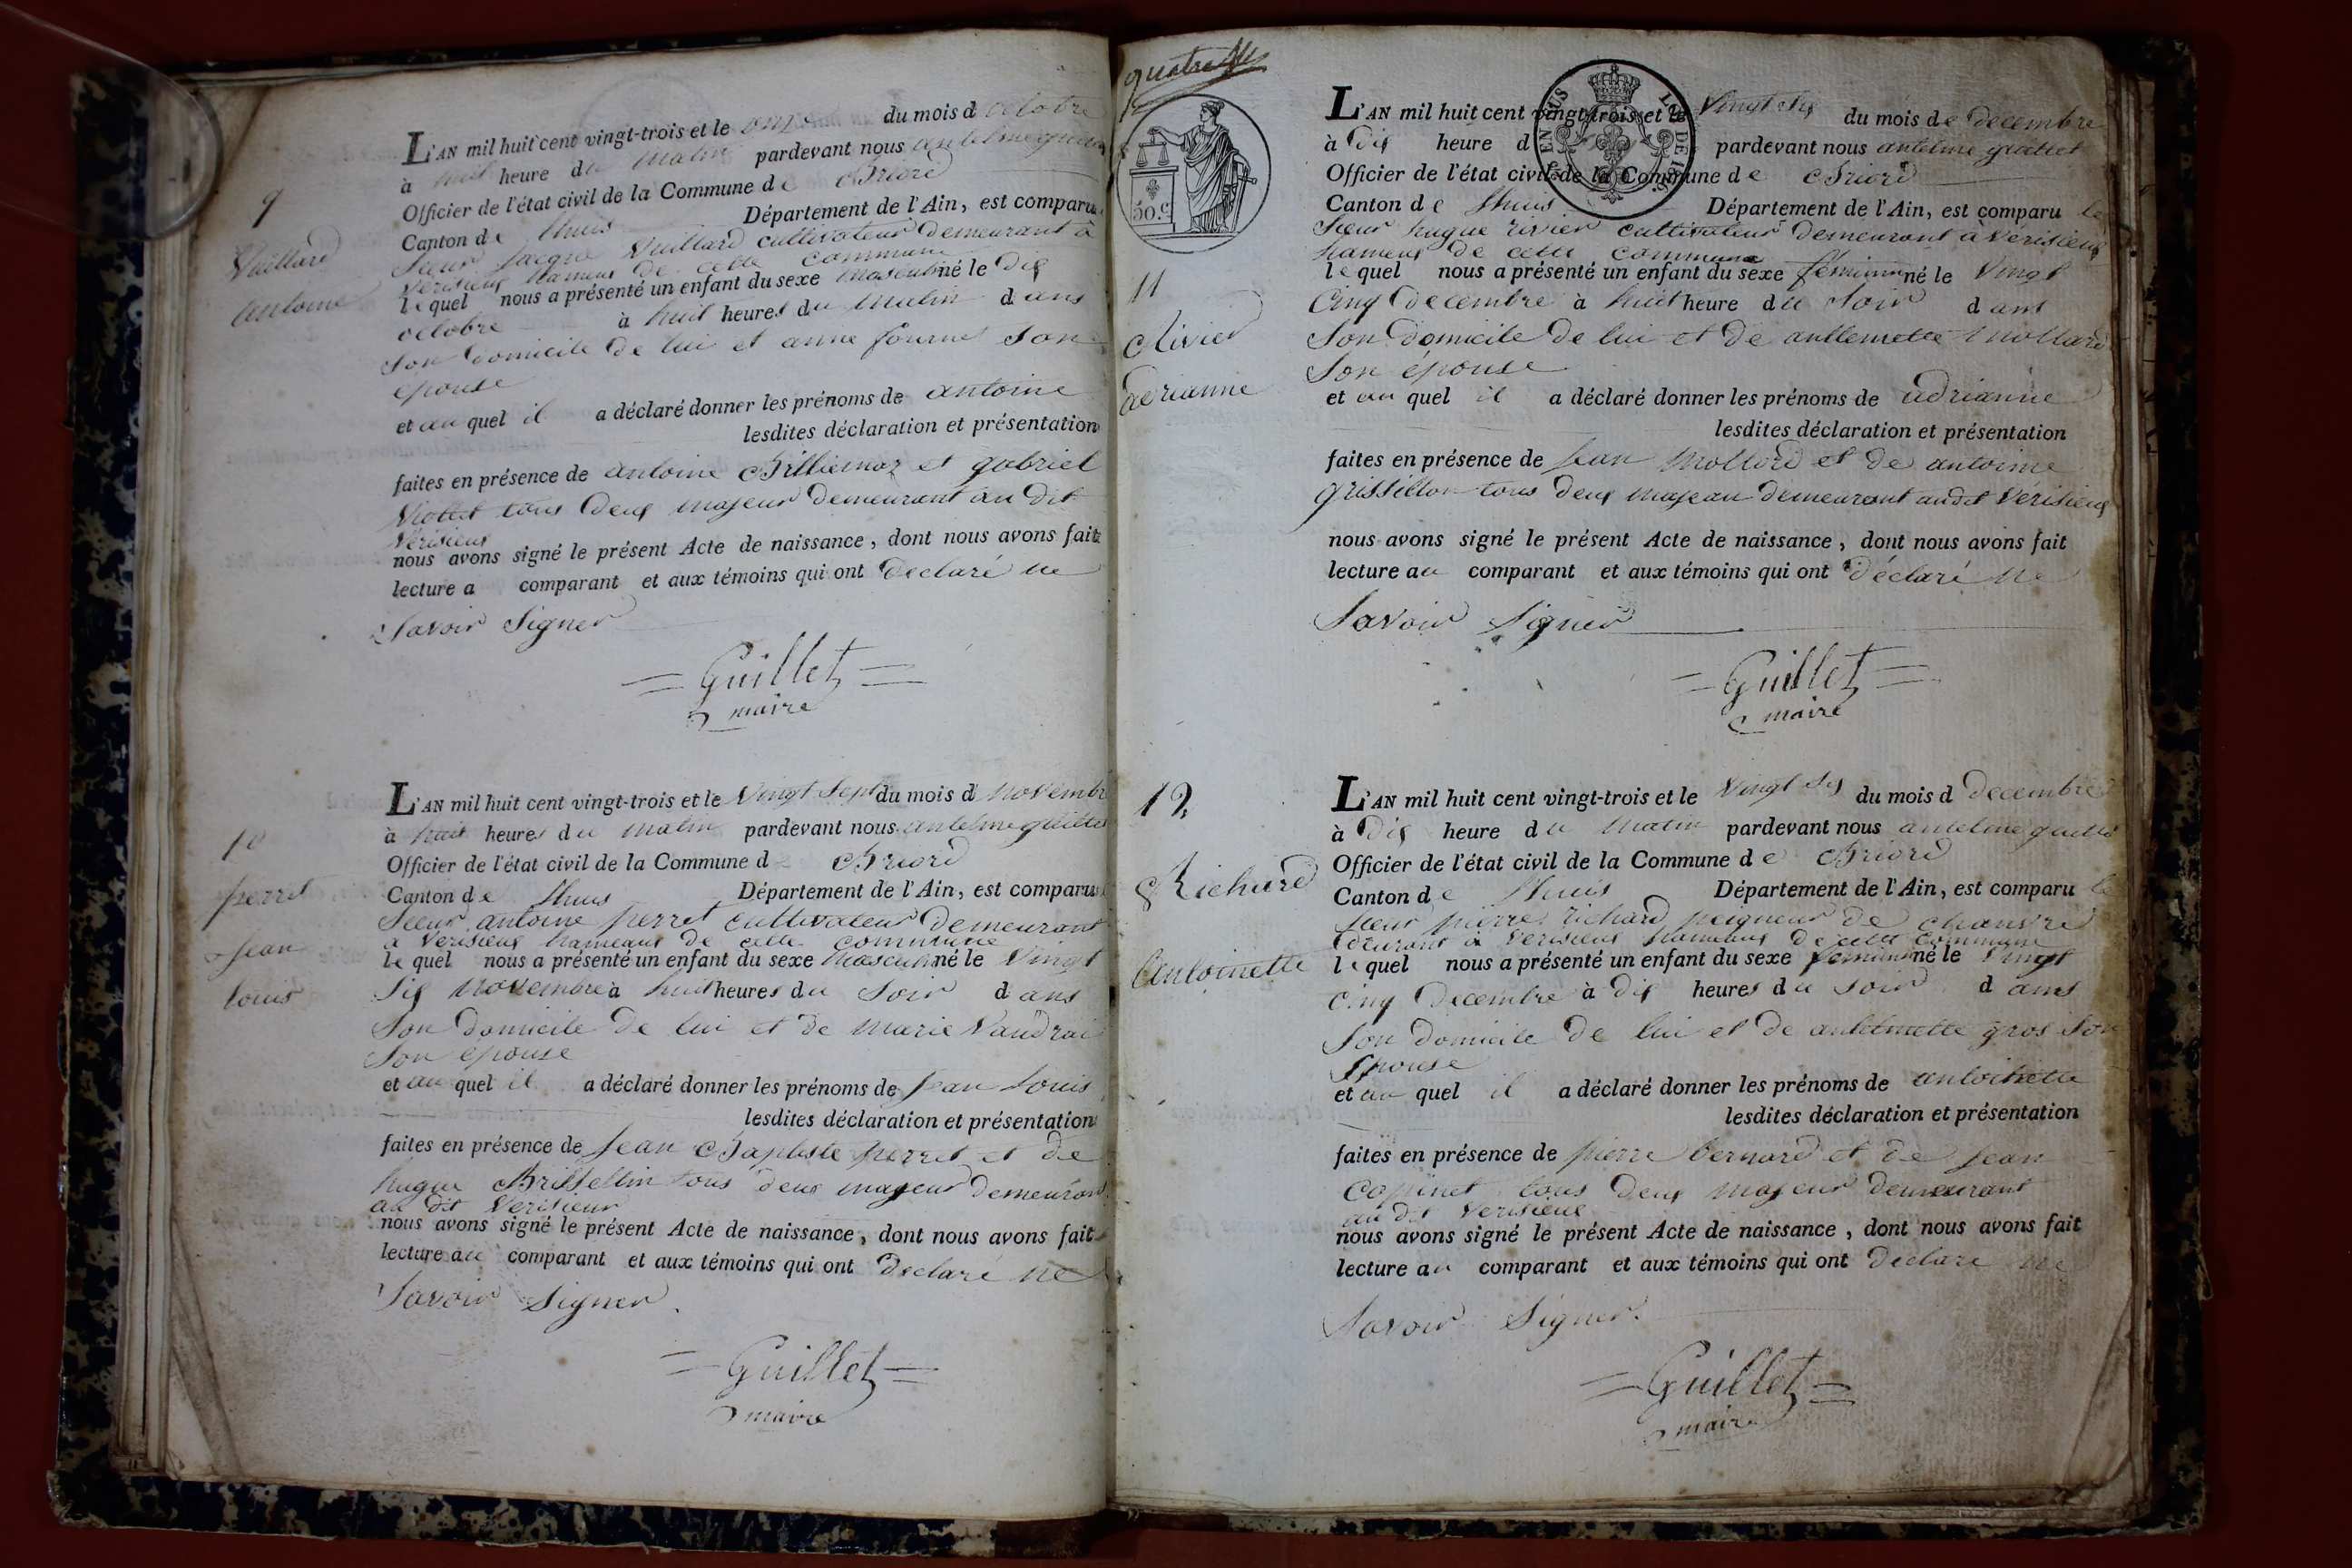 9
Vuillard
antoine
L'AN mil huit cent vingt-trois et le onze du mois d octobre
à huit heure du matin pardevant nous antelme guillet
Officier de l'état civil de la Commune de Briord
Canton de Lhuis Département de l'Ain, est comparu
Sieur jacque Vuillard cultivateur demeurant à
Verisieux hameux de cette commune
lequel nous a présenté un enfant du sexe masculin né le dix
octobre à huit heures du matin dans
Son domicile de lui et anne fournet Son
épouse
et au quel il a déclaré donner les prénoms de antoine
lesdites déclaration et présentation
faites en présence de antoine Brilliemaz et gabriel
Viottet tous deux majeur demeurant au dit
Vérisieux
nous avons signé le présent Acte de naissance, dont nous avons fait
lecture a comparant et aux témoins qui ont déclaré ne
Savoir Signer
Guillet
maire
10
perret
Jean
Louis
L'AN mil huit cent vingt-trois et le Vingt Sept du mois d novembre
à huit heures du matin pardevant nous antelme guillet
Officier de l'état civil de la Commune d Briord
Canton de Lhuis Département de l'Ain, est comparu
Sieur antoine perret cultivateur demeurant
à Verisieux hameaux de cette commune
lequel nous a présenté un enfant du sexe masculin né le Vingt
Six novembre à huit heures du Soir dans
Son domicile de lui et de marie Vaudrai
Son épouse
et au quel il a déclaré donner les prénoms de Jean Louis
lesdites déclaration et présentation
faites en présence de Jean Baptiste perret et de
hugue tous deux majeur demeurant
au dit Verisieux
nous avons signé le présent Acte de naissance, dont nous avons fait
lecture au comparant et aux témoins qui ont déclaré ne
Savoir Signer.
Guillet
maire
quatre
50.c
11
Rivier
adrianne
L'AN mil huit cent vingt-trois et le Vingt Six du mois de decembre
à dix heure d pardevant nous antelme guillet
Officier de l'état civil de la Commune de Briord
Canton de Lhuis Département de l'Ain, est comparu le
Sieur hugue rivier cultivateur demeurant à Vérisieux
hameux de cette commune
lequel nous a présenté un enfant du sexe féminin né le Vingt
Cinq decembre à huit heure du Soir dans
Son domicile de lui et de antlemette mollard
Son épouse
et au quel il a déclaré donner les prénoms de adrianne
lesdites déclaration et présentation
faites en présence de Jean mollard et de antoine
grissillon tous deux majeau demeurant audit Vérisieux
nous avons signé le présent Acte de naissance, dont nous avons fait
lecture au comparant et aux témoins qui ont déclaré ne
Savoir Signer
Guillet
maire
12
Richard
Antoinette
L'AN mil huit cent vingt-trois et le Vingt Six du mois d decembre
à dix heure du matin pardevant nous antelme guillet
Officier de l'état civil de la Commune de Briord
Canton de Lhuis Département de l'Ain, est comparu le
Sieur pierre richard peigneur de chanvre
à Verisieux hameaux de cette commune
lequel nous a présenté un enfant du sexe féminin né le Vingt
cinq decembre à dix heures du Soir dans
Son domicile de lui et de antelmette gros Son
Epouse
et au quel il a déclaré donner les prénoms de antoinette
lesdites déclaration et présentation
faites en présence de pierre bernard et de Jean
Copinet tous deux majeur demeurant
au dit Verisieux
nous avons signé le présent Acte de naissance, dont nous avons fait
lecture au comparant et aux témoins qui ont déclare ne
Savoir Signer.
Guillet
maire